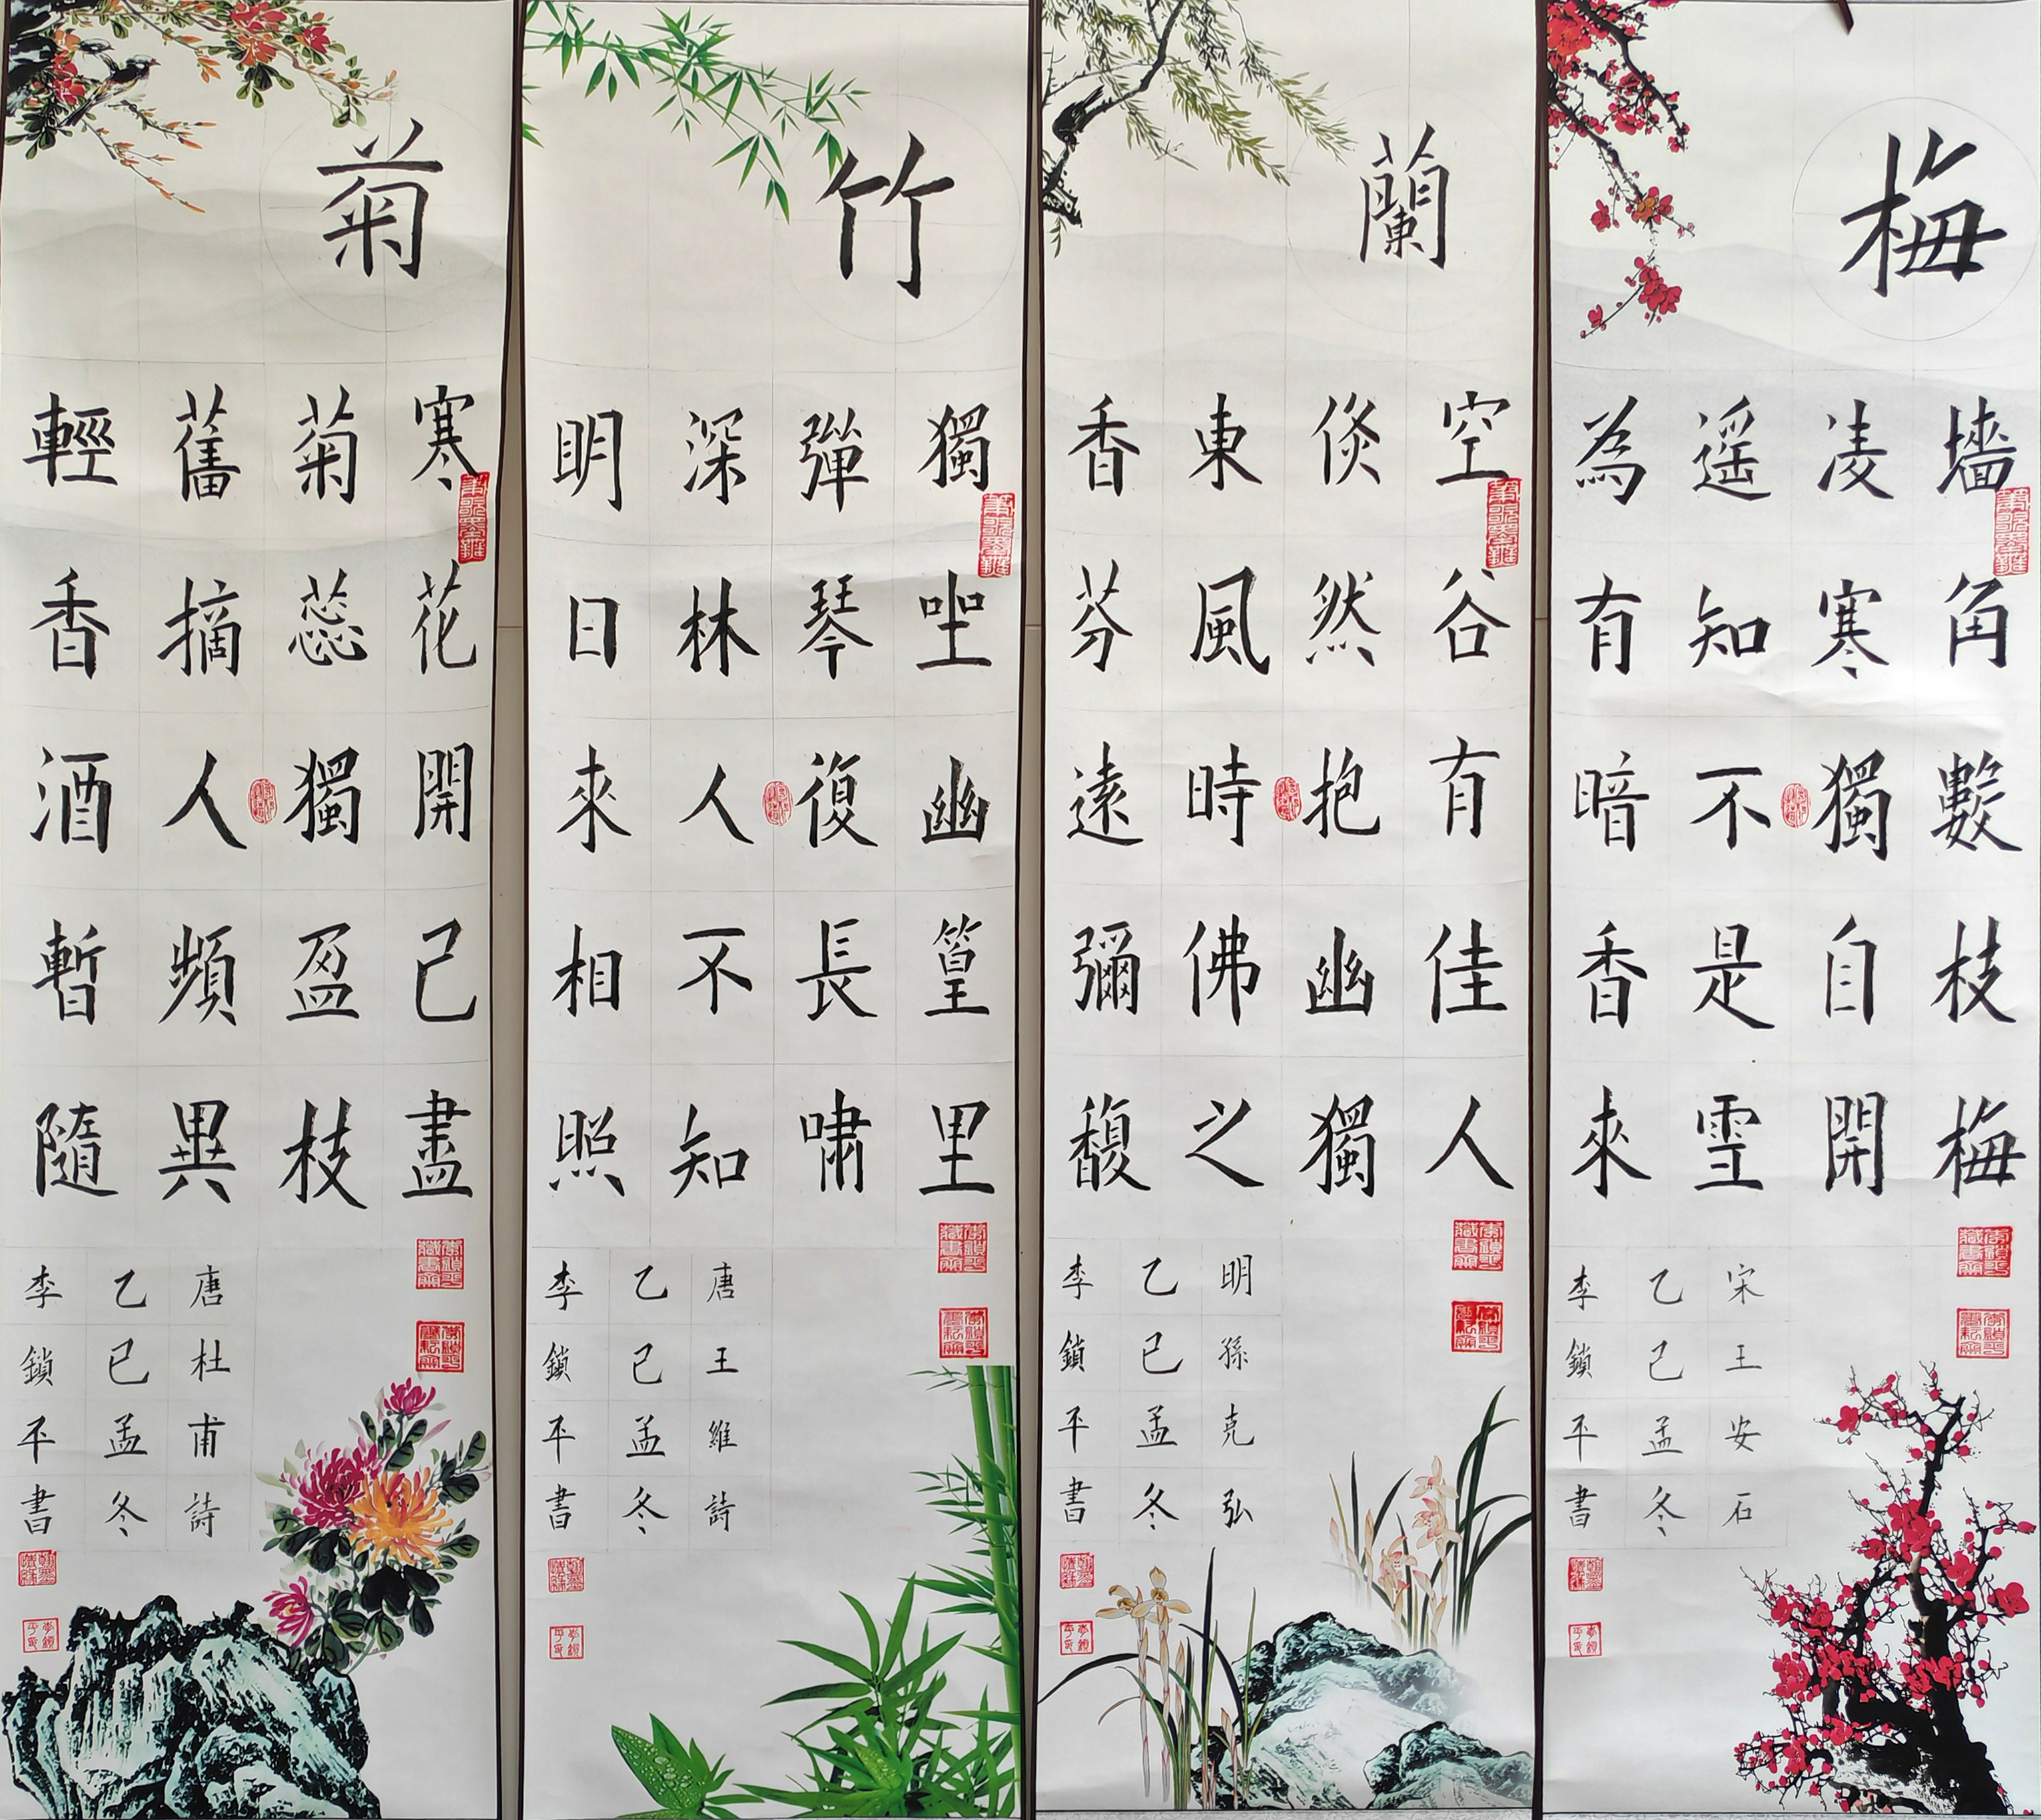 梅
墻角數枝梅
凌寒獨自開
遥知不是雪
為有暗香來
宋王安石
乙巳孟冬
李鎖平書
蘭
空谷有佳人
倐然抱幽獨
東風時佛之
香芬遠彌馥
明孫克弘
乙巳孟冬
李鎖平書
竹
獨坐幽篁里
彈琴復長嘯
深林人不知
明日來相照
唐王維詩
乙巳孟冬
李鎖平書
菊
寒花開已盡
菊蕊獨盈枝
舊摘人頻異
輕香酒暫隨
唐杜甫詩
乙巳孟冬
李鎖平書